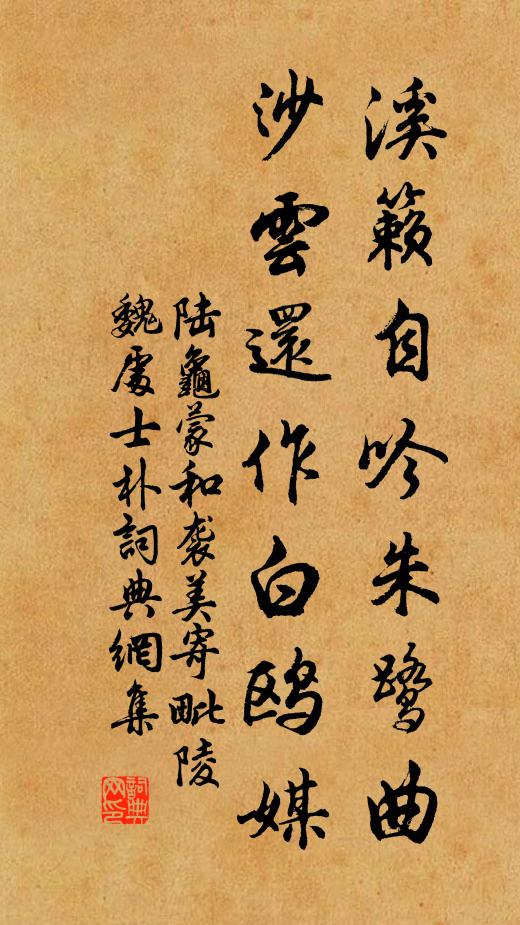 溪籟自吟朱鷺曲
沙雲還作白鷗媒
陆龜蒙和袭美寄毗陵
魏處士朴詞典網集
詞典网印